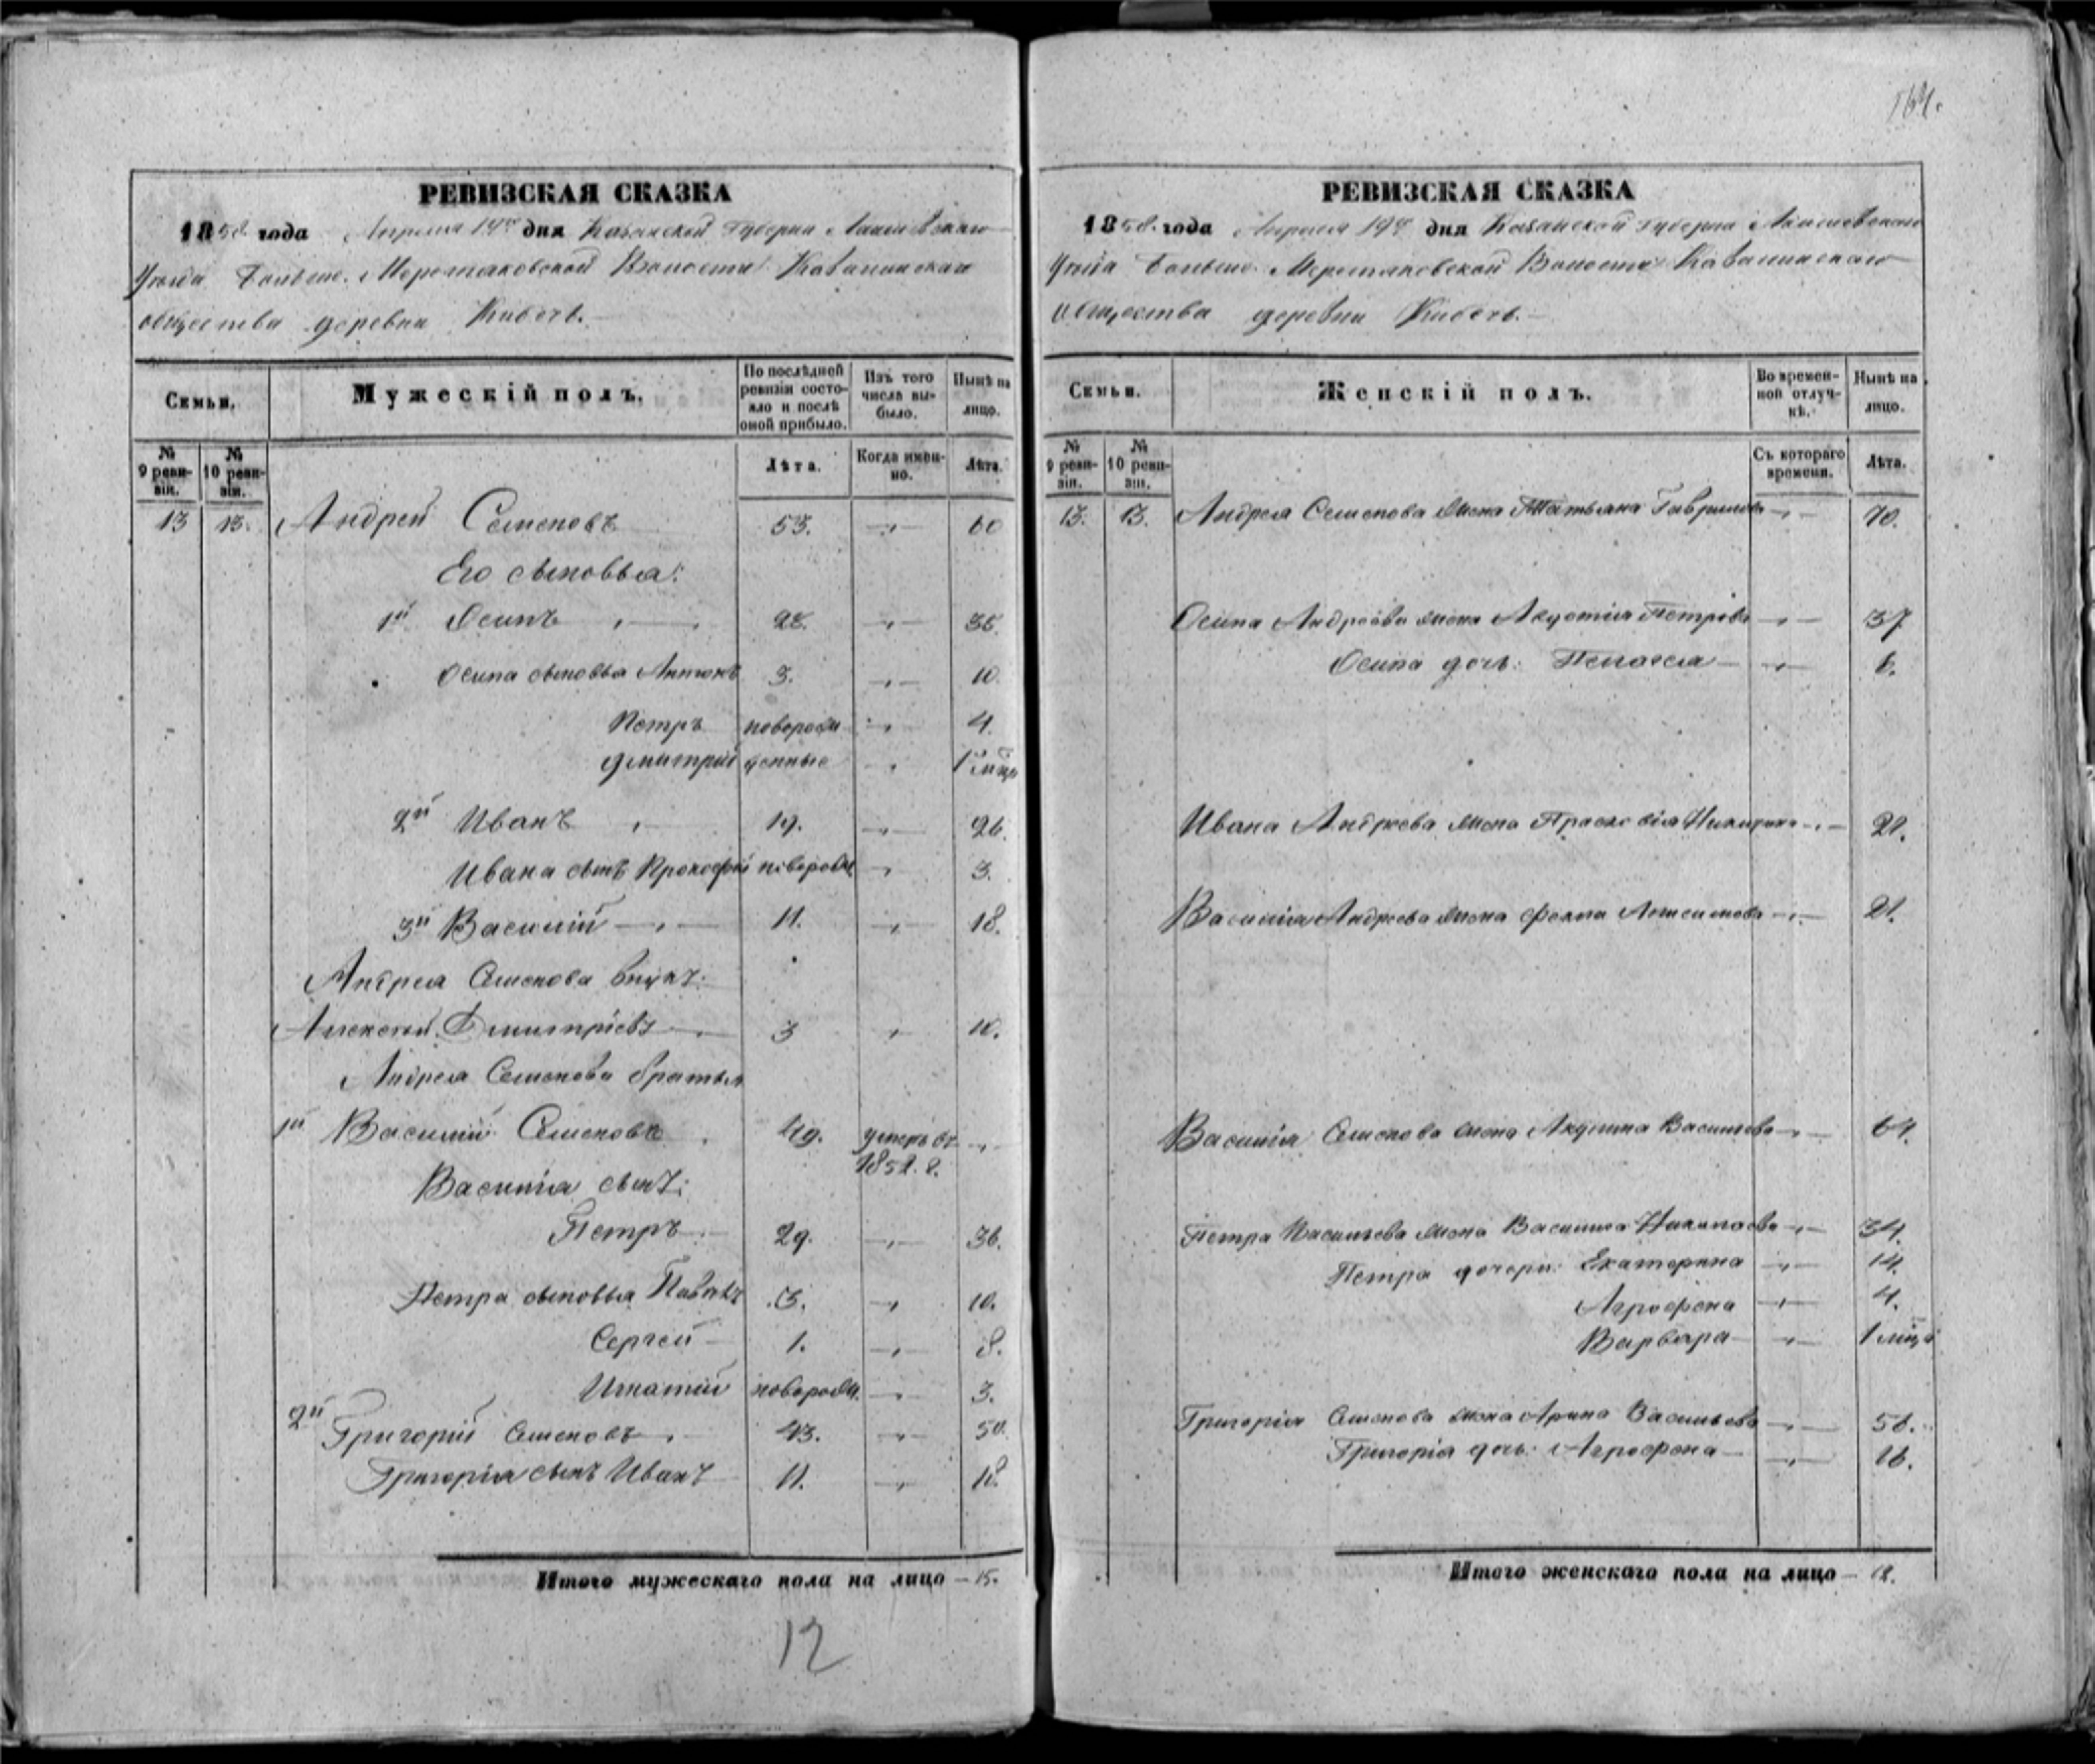 164.
РЕВИЗСКАЯ СКАЗКА
1858 года Апреля 19го дня Казанской Губернии Лаишевскаго
Уезда Больше-Меретяковской Волости Ковалинскаго
общества деревни Кибечь.
Семьи.
Мужескій полъ.
По послѣдней ревизіи состояло и послѣ оной прибыло.
Изъ того числа выбыло.
Нынѣ на лицо.
№ 9 ревизіи.
№ 10 ревизіи.
Лѣта.
Когда именно.
Лѣта.
13 13. Андрей Семеновъ 53. -„- 60
Его сыновья:
1й Осипъ 28. -„- 35.
Осипа сыновья Антонъ 3. -„- 10.
Петръ новорож -„- 4.
Димитрій денные „ 1 мцъ
2й Иванъ 19. -„- 26.
Ивана сынъ Прокофій новорожд. -„- 3.
3й Василій -„- 11. -„- 18.
Андрея Семенова внукъ:
Алексей Дмитріевъ 3 „ 10.
Андрея Семенова братья
1й Василій Семеновъ 49. умеръ въ -„-
1852. г.
Василія сынъ:
Петръ 29. -„- 36.
Петра сыновья Павелъ 3. -„- 10.
Сергей 1. -„- 8.
Игнатій новорожд. -„- 3.
2й Григорій Семеновъ 43. -„- 50.
Григорія сынъ Иванъ 11. -„- 18.
Итого мужескаго пола на лицо — 15.
12
РЕВИЗСКАЯ СКАЗКА
1858. года Апреля 19го дня Казанской Губерніи Лаишевскаго
Уезда Больше-Меретяковской Волости Ковалинскаго
общества деревни Кибечь.
Семьи.
Женскій полъ.
Во временной отлучкѣ.
Нынѣ на лицо.
№ 9 ревизіи.
№ 10 ревизіи.
Съ котораго времени.
Лѣта.
13. 13. Андрея Семенова жена Татьяна Гаврилова -„- 70.
Осипа Андреева жена Петрова -„- 37
Осипа дочь: Пелагея -„- 6.
Ивана Андреева жена Прасковія -„- 21.
Василія Андреева жена Фекла -„- 21.
Василія Семенова жена Акулина Васильева -„- 64.
Петра Васильева жена Василиса Николаева -„- 34.
Петра дочери: Екатерина -„- 14.
Агрофена -„- 4.
Варвара -„- 1 мцъ
Григорія Семенова жена Арина Васильева -„- 58.
Григорія дочь: Агрофена -„- 16.
Итого женскаго пола на лицо — 12.